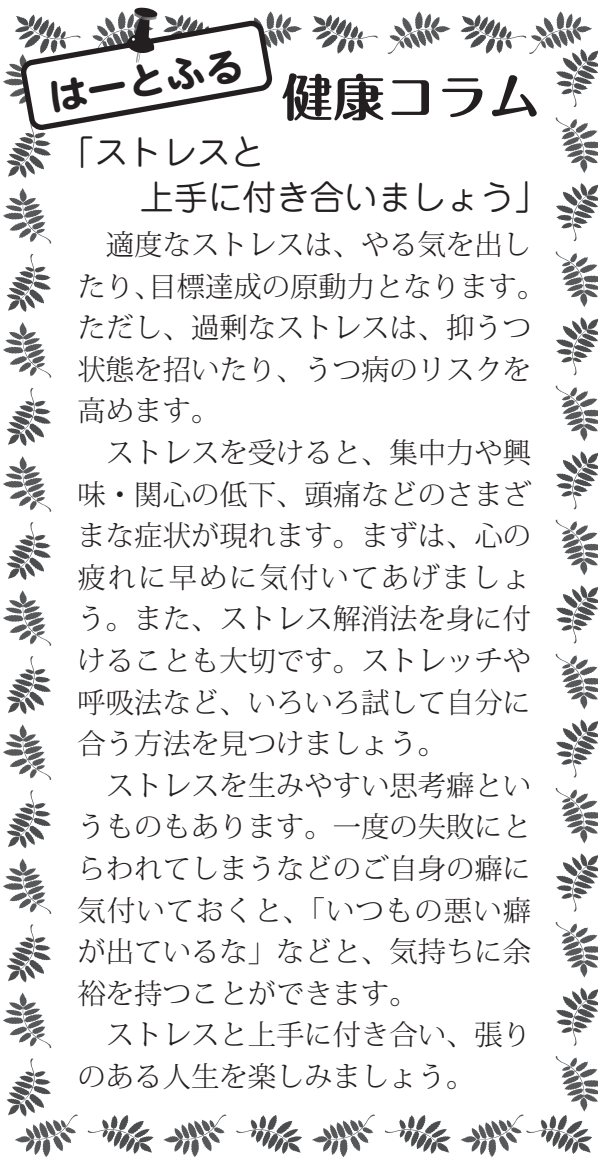 はーとふる
健康コラム
「ストレスと
上手に付き合いましょう」
適度なストレスは、やる気を出し
たり、目標達成の原動力となります。
ただし、過剰なストレスは、抑うつ
状態を招いたり、うつ病のリスクを
高めます。
ストレスを受けると、集中力や興
味・関心の低下、頭痛などのさまざ
まな症状が現れます。まずは、心の
疲れに早めに気付いてあげましょ
う。また、ストレス解消法を身に付
けることも大切です。ストレッチや
呼吸法など、いろいろ試して自分に
合う方法を見つけましょう。
ストレスを生みやすい思考癖とい
うものもあります。一度の失敗にと
らわれてしまうなどのご自身の癖に
気付いておくと、「いつもの悪い癖
が出ているな」などと、気持ちに余
裕を持つことができます。
ストレスと上手に付き合い、張り
のある人生を楽しみましょう。